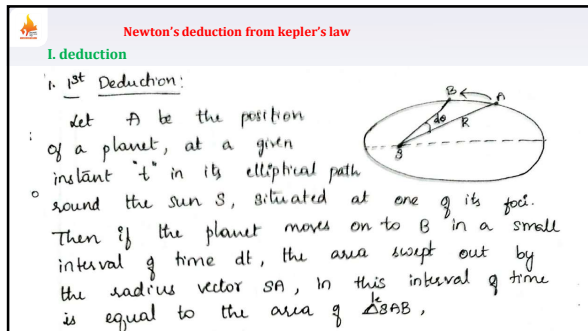 Newton's deduction from kepler's law
I. deduction
1. 1st Deduction:
Let A be the position
of a planet, at a given
instant "t" in its elliptical path
round the sun S, situated at one of its foci.
Then if the planet moves on to B in a small
interval of time dt, the area swept out by
the radius vector SA, in this interval of time
is equal to the area of Δle SAB,
B
A
dθ
R
S